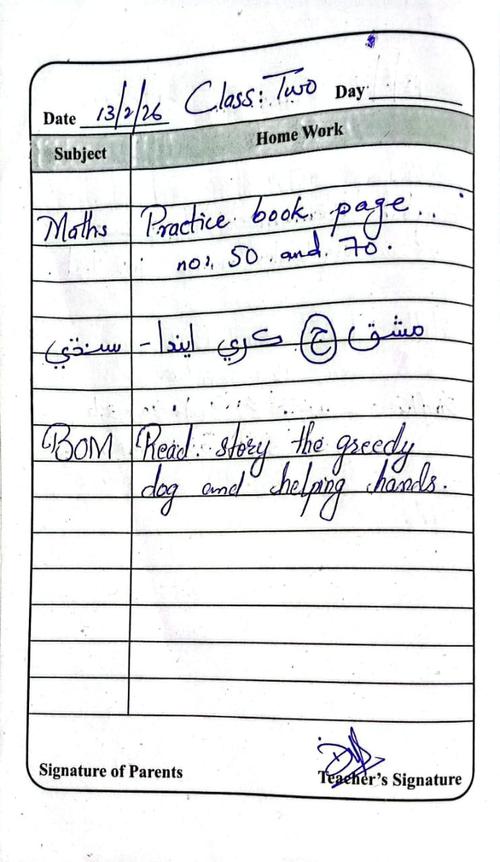 Date 13/2/26 Class: Two Day
Subject Home Work
Maths Practice book page
no: 50 and 70.
سنڌي - مشق ج ڪري ايندا
BOM Read story the greedy
dog and helping hands.
Signature of Parents Teacher's Signature